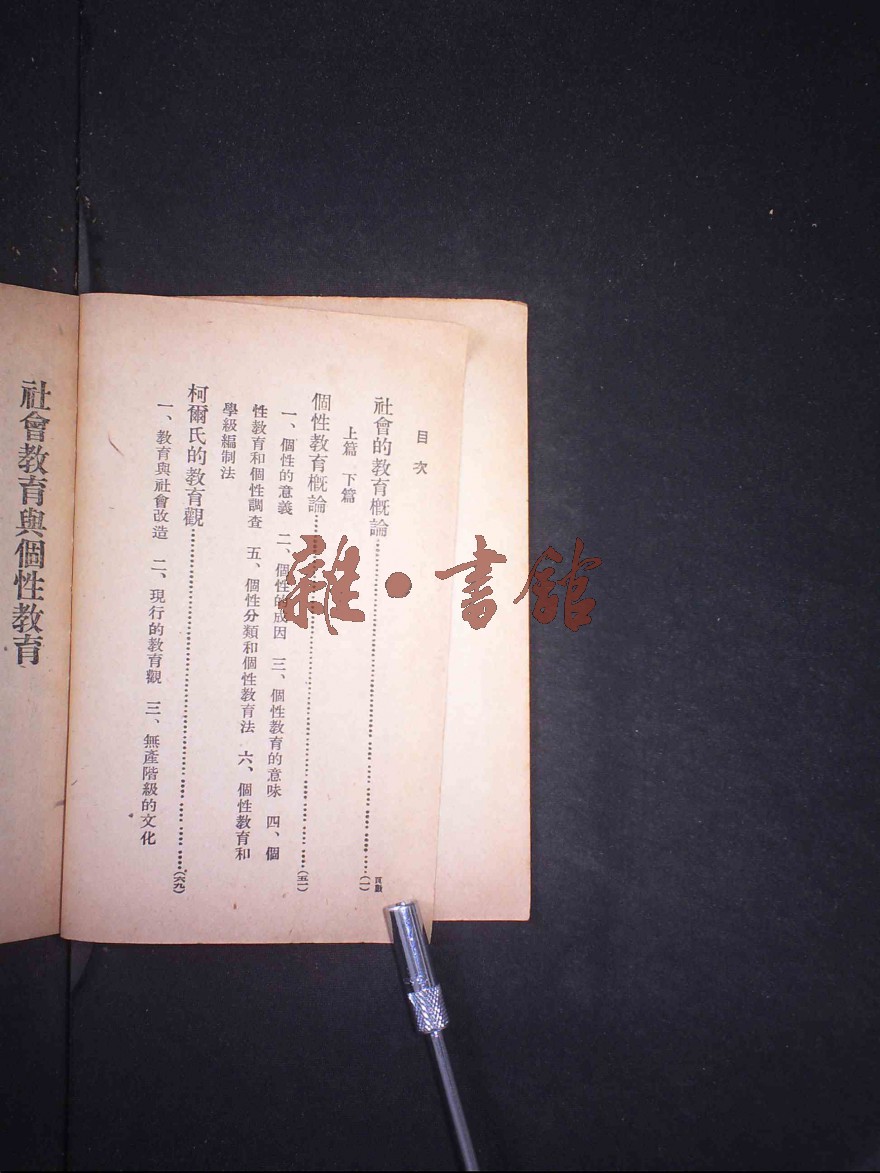 目次
頁數
社會的教育概論……(一)
上篇　下篇
個性教育概論……(五一)
一、個性的意義　二、個性的成因　三、個性教育的意味　四、個
性教育和個性調查　五、個性分類和個性教育法　六、個性教育和
學級編制法
柯爾氏的教育觀……(六九)
一、教育與社會改造　二、現行的教育觀　三、無產階級的文化
社會教育與個性教育
雜·書館